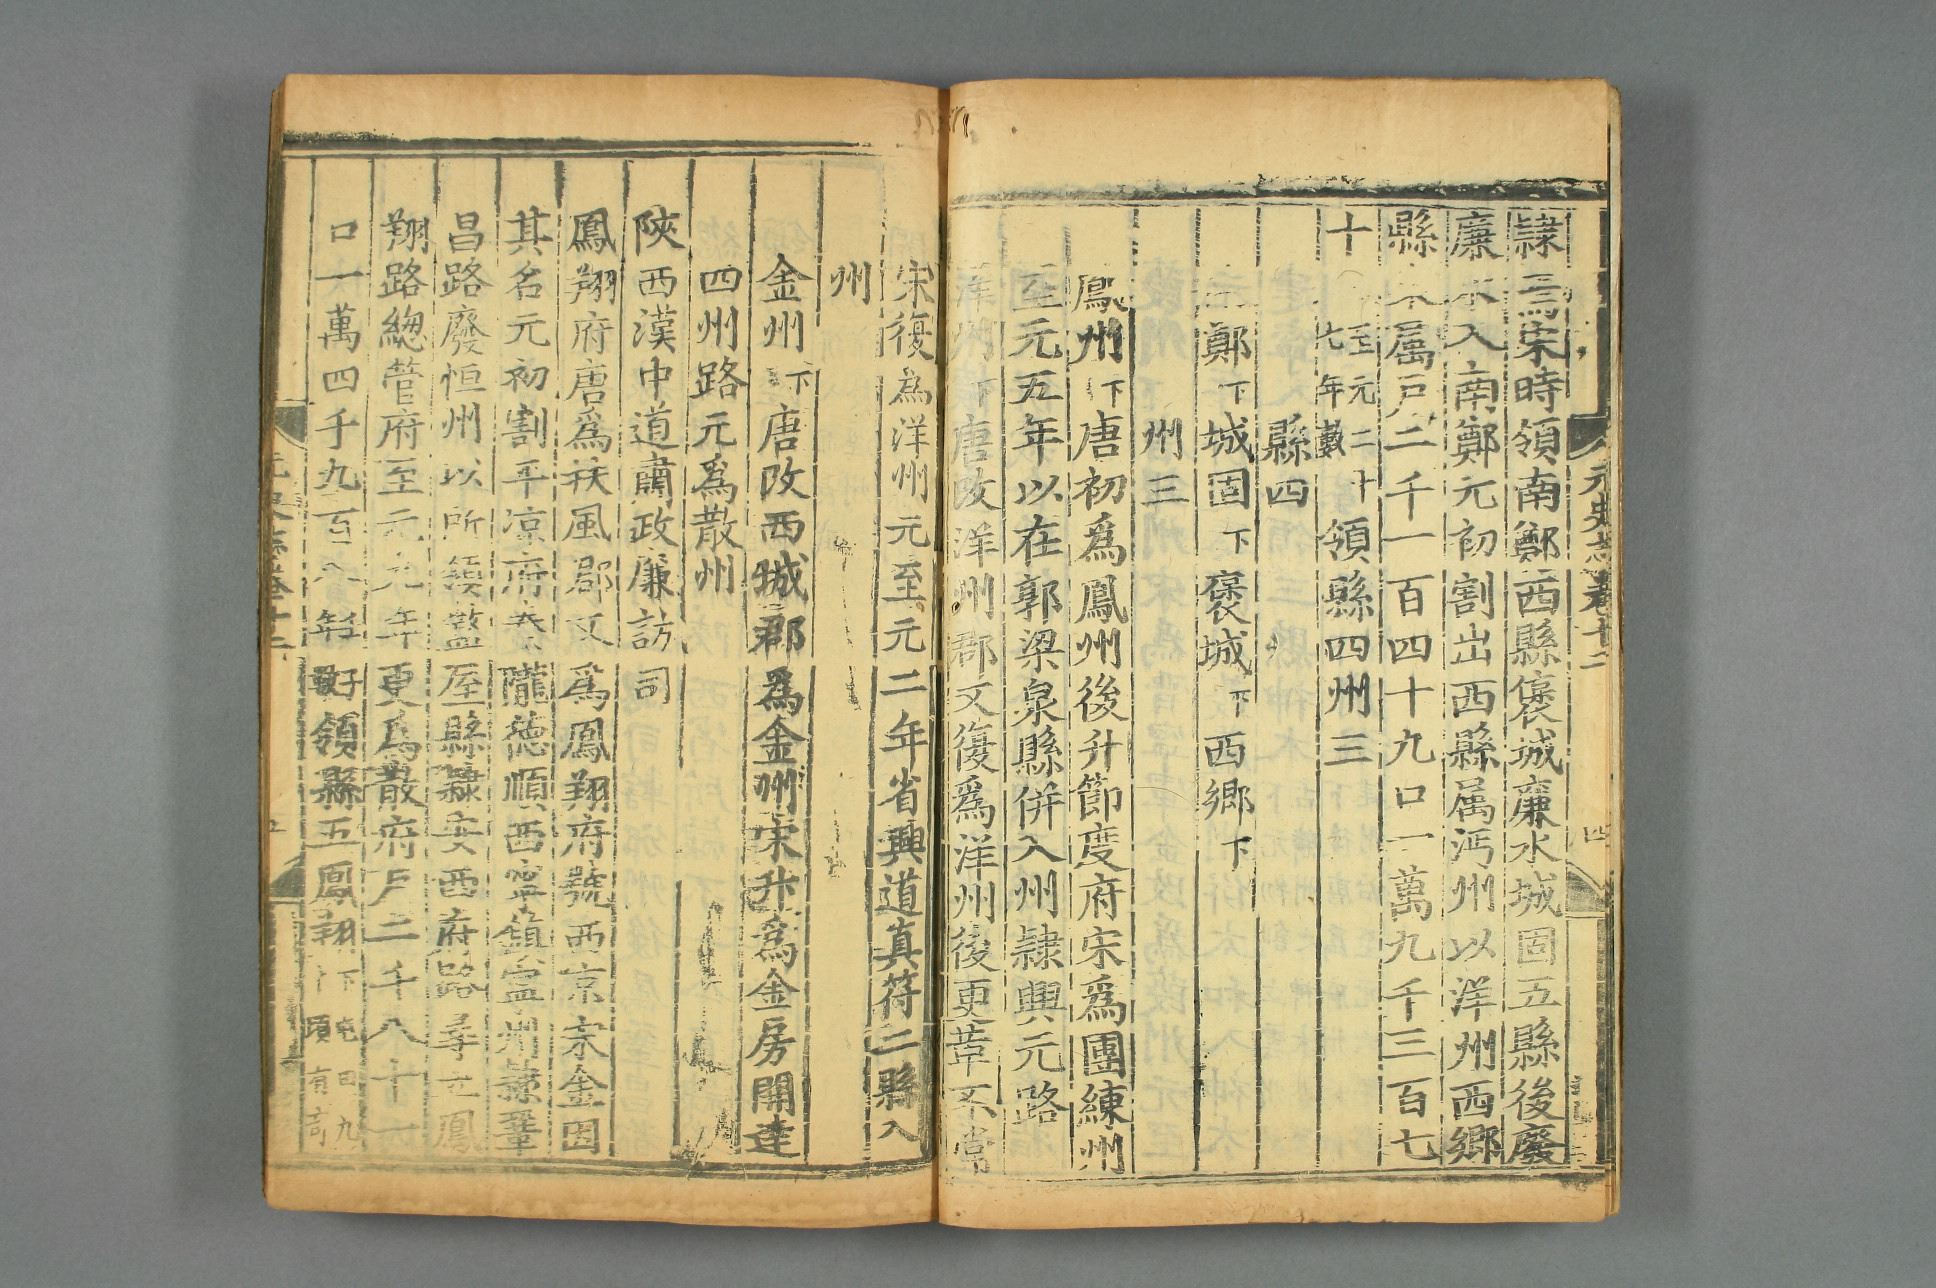 元史志卷十二
四
隷焉宋時領南鄭西縣褒城廉水城固五縣後廢
廉水入南鄭元初割出西縣属沔州以洋州西鄉
縣來屬戶二千一百四十九口一萬九千三百七
十至元二十七年數領縣四州三
縣四
南鄭下城固下褒城下西鄉下
州三
鳳州下唐初爲鳳州後升節度府宋爲團練州
至元五年以在郭梁泉縣併入州隷興元路
洋州下唐改洋州郡又復爲洋州後更革不常
宋復為洋州元至元二年省興道真符二縣入
州
金州下唐改西城郡爲金州宋升為金房開達
四州路元爲散州
陝西漢中道肅政廉訪司
鳳翔府唐爲扶風郡又爲鳳翔府號西京宋金因
其名元初割平凉府秦隴德順西寧鎮寧州隷鞏
昌路廢恒州以所領盩厔縣隷安西府路尋立鳳
翔路緫管府至元九年更爲散府戶二千八十一
口一萬四千九百八領縣五鳳翔下屯田九十頃
元史志卷十二
五